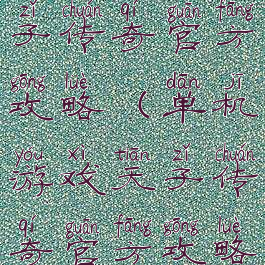 zǐ chuán qí guān fāng
子传奇官方
gōng lüè dān jī
攻略（单机
yóu xì tiān zǐ chuán
游戏天子传
qí guān fāng gōng lüè
奇官方攻略